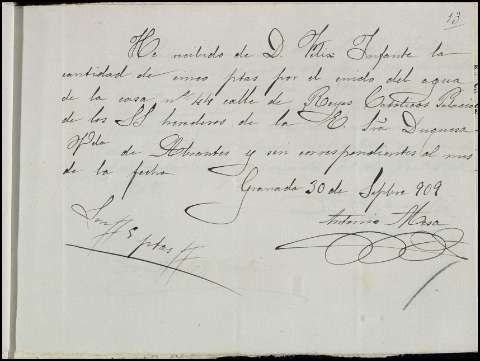 13
He recibido de D. Felix Infante la
cantidad de cinco ptas por el cuido del agua
de la casa nº 44 calle de Reyes Catolicos Palacio
de los SS herederos de la E. Sra Duquesa
Vda de Abrantes y son correspondientes al mes
de la fecha
Granada 30 de Sepbre 909
Son # 5 ptas #
Antonio Mesa